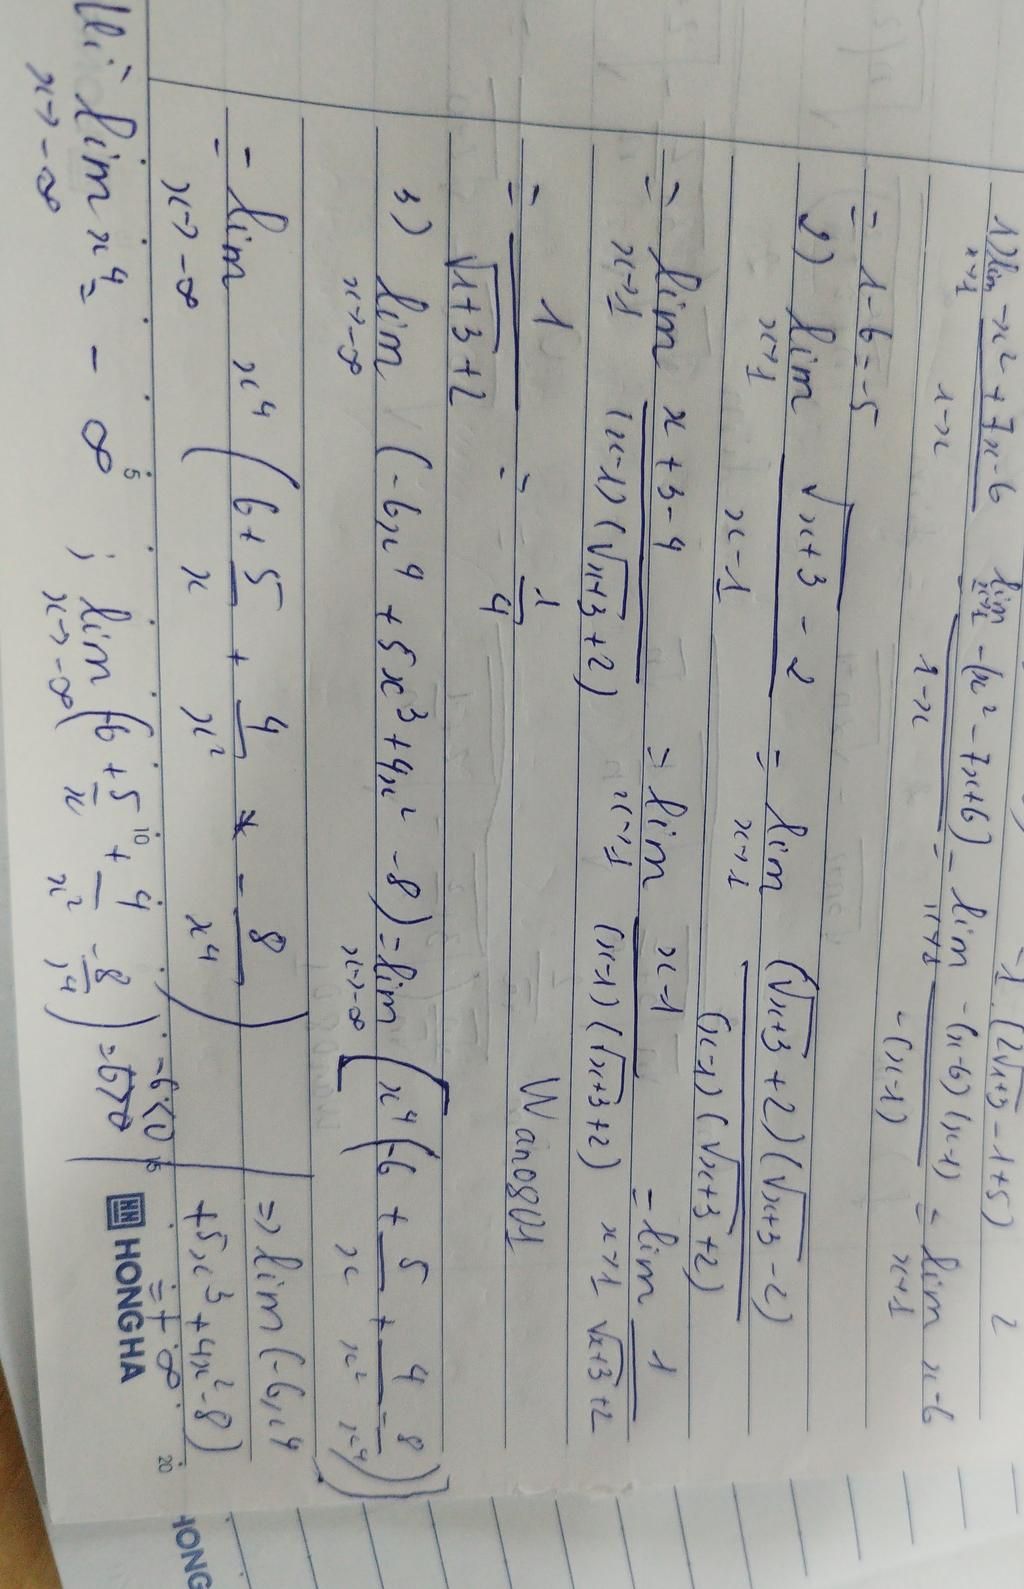 -1 (2√x+3 - 1+5) 2
1) lim x→1 -x² + 7x - 6 / 1-x = lim x→1 -(x² - 7x + 6) / 1-x = lim x→1 -(x-6)(x-1) / -(x-1) = lim x→1 x-6
= 1-6 = -5
2) lim x→1 √x+3 - 2 / x-1 = lim x→1 (√x+3 + 2)(√x+3 - 2) / (x-1)(√x+3 + 2)
= lim x→1 x+3-4 / (x-1)(√x+3 + 2) = lim x→1 x-1 / (x-1)(√x+3 + 2) = lim x→1 1 / √x+3 + 2
= 1 / √1+3 + 2 = 1/4 Wanog01
3) lim x→-∞ (-6x⁴ + 5x³ + 4x² - 8) = lim x→-∞ [x⁴(-6 + 5/x + 4/x² - 8/x⁴)]
= lim x→-∞ x⁴ (6 + 5/x + 4/x² - 8/x⁴)
Vì lim x→-∞ x⁴ = -∞ ; lim x→-∞ (-6 + 5/x + 4/x² - 8/x⁴) = 6>0 -6<0
=> lim (-6x⁴
+ 5x³ + 4x² - 8)
= + ∞
5 10 15 20
HH HONG HA
HONG